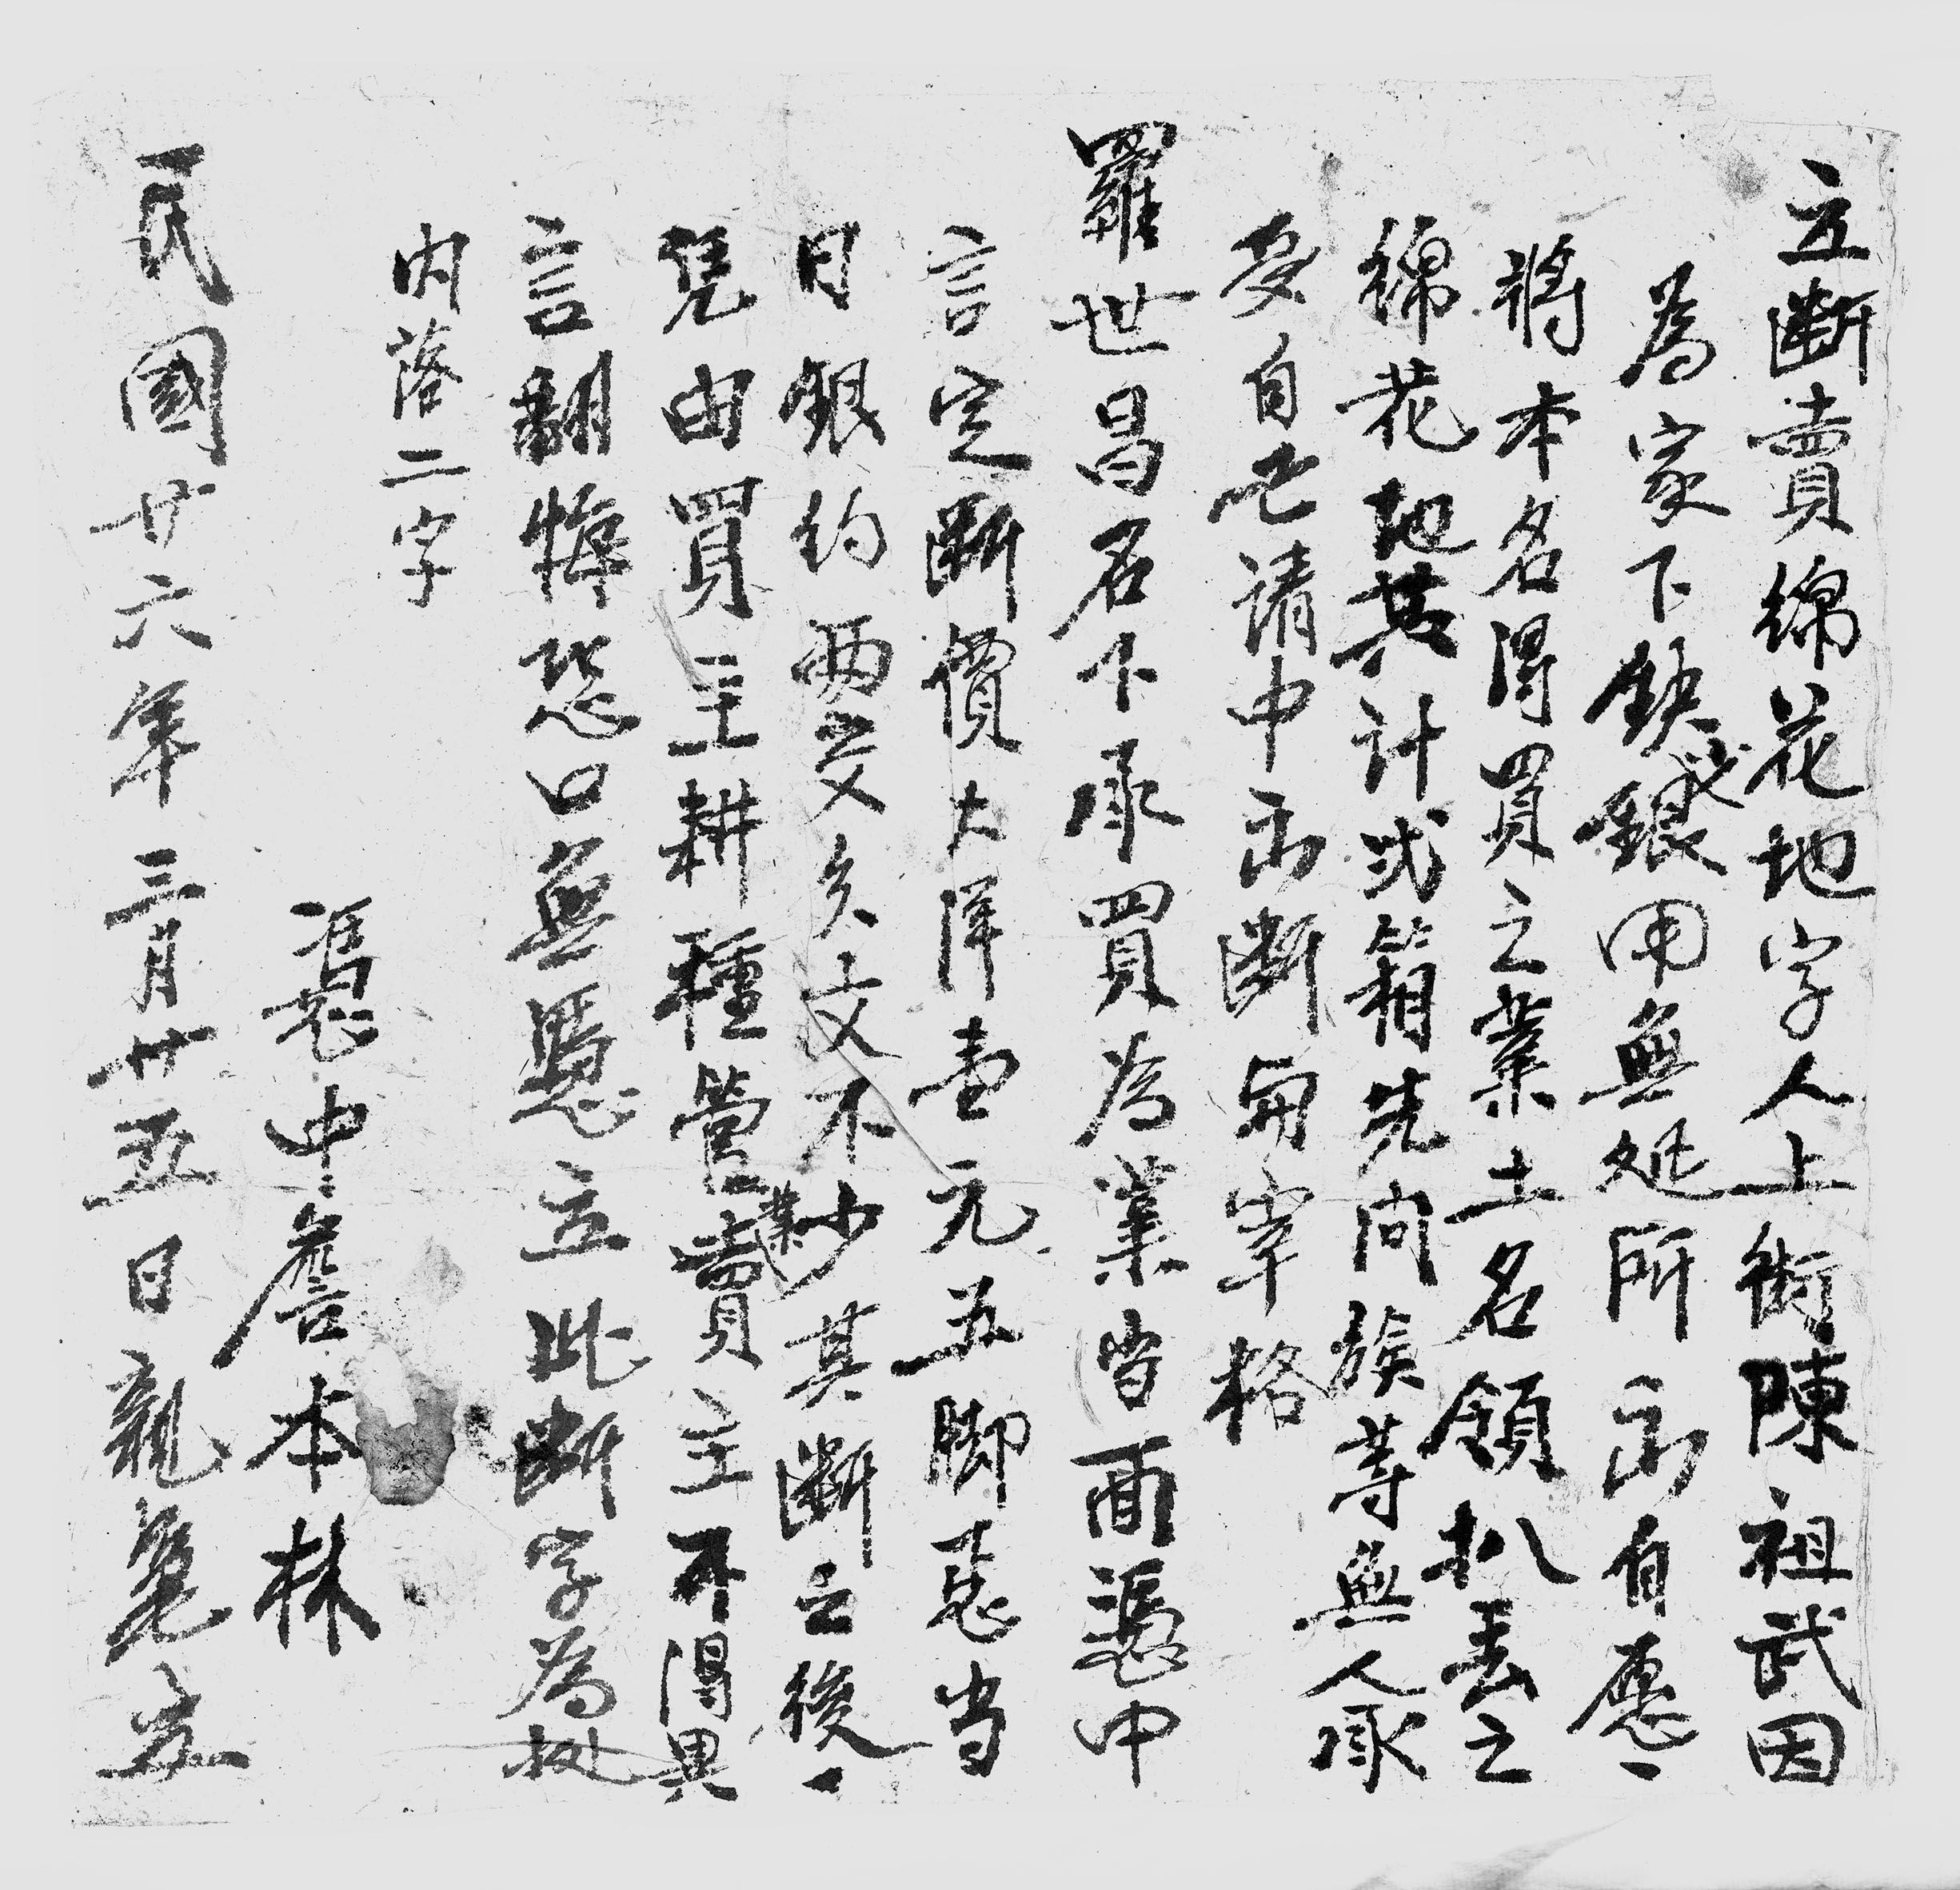 立斷賣綿花地字人上街陳祖武因
為家下缺少銀用無処所出自愿
將本名得買之業土名領扒丟之
綿花地其計弍箱先问族等無人承
受自己請中出斷與宰格
羅世昌名下承買為業当面憑中
言定斷價大洋壹元五脚㤫当
日銀約両交欠文不少其斷之後
凭由買主耕種管業賣主不得異
言翻悔恐口無憑立此斷字為挞
内落二字
馮㤫中詹本林
民國廿六年三月廿五日親筆立